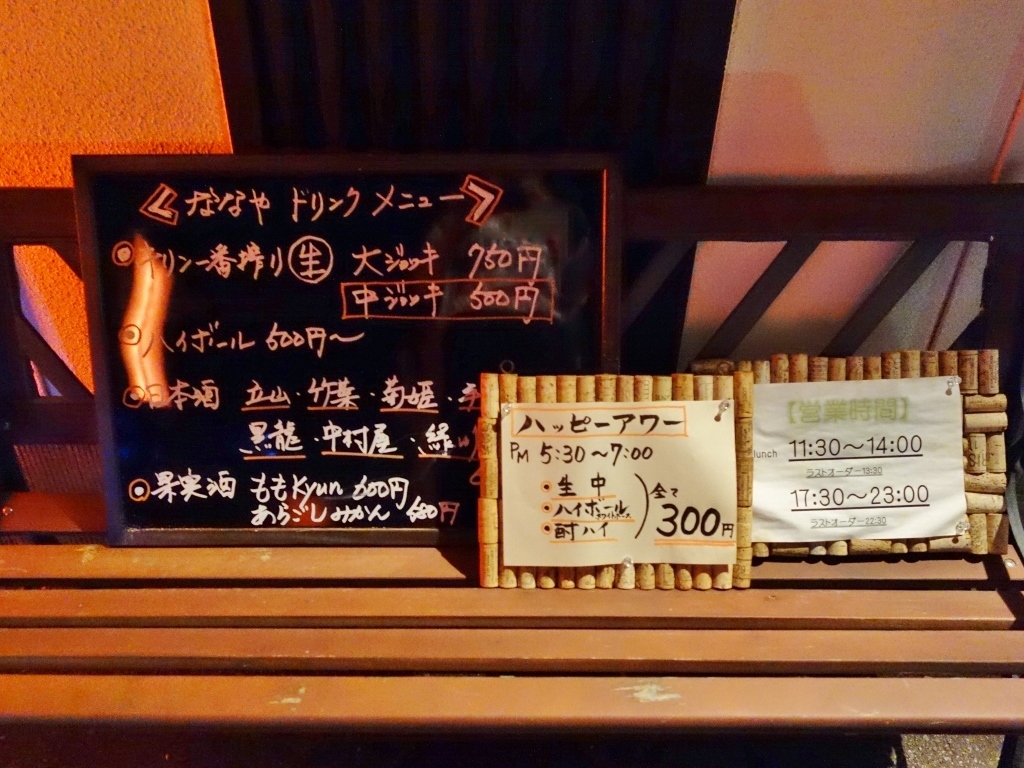 ななや ドリンク メニュー
キリン一番搾り 生 大ジョッキ 750円
中ジョッキ 500円
ハイボール 600円〜
日本酒 立山・竹葉・菊姫・
黒龍・中村屋・
果実酒 ももkyun 600円
あらごしみかん 600円
ハッピーアワー
PM 5:30〜7:00
・生 中
・ハイボール
・酎ハイ
全て
300円
【営業時間】
lunch 11:30〜14:00
ラストオーダー13:30
17:30〜23:00
ラストオーダー22:30